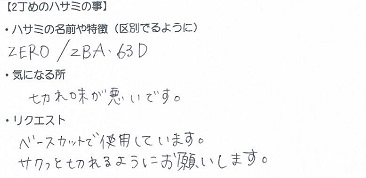 【2丁めのハサミの事】
・ハサミの名前や特徴（区別でるように）
ZERO/ZBA・63D
・気になる所
切れ味が悪いです。
・リクエスト
ベースカットで使用しています。
サクッと切れるようにお願いします。